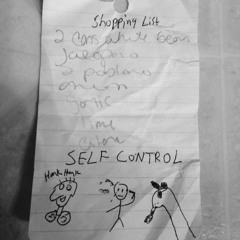 Shopping List
2 cans white beans
Jalapeno
2 poblano
onion
garlic
lime
SELF CONTROL
Honk Honk